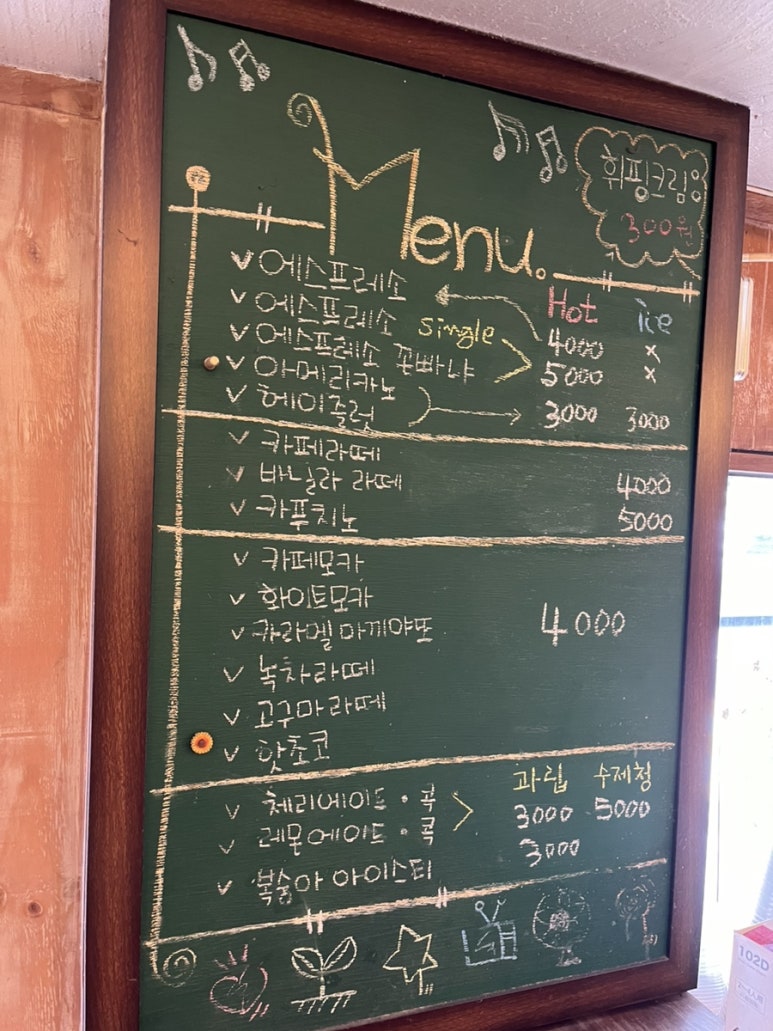 휘핑크림
300원
Menu.
Hot ice
∨ 에스프레소
∨ 에스프레소 single 4000 x
∨ 에스프레소 꼰빠냐 5000 x
∨ 아메리카노
∨ 헤이즐럿 3000 3000
∨ 카페라떼
∨ 바닐라 라떼 4000
∨ 카푸치노 5000
∨ 카페모카
∨ 화이트모카
∨ 카라멜 마끼야또 4000
∨ 녹차라떼
∨ 고구마라떼
∨ 핫초코
과립 수제청
∨ 체리에이드 · 콕 3000 5000
∨ 레몬에이드 · 콕
3000
∨ 복숭아 아이스티
102D